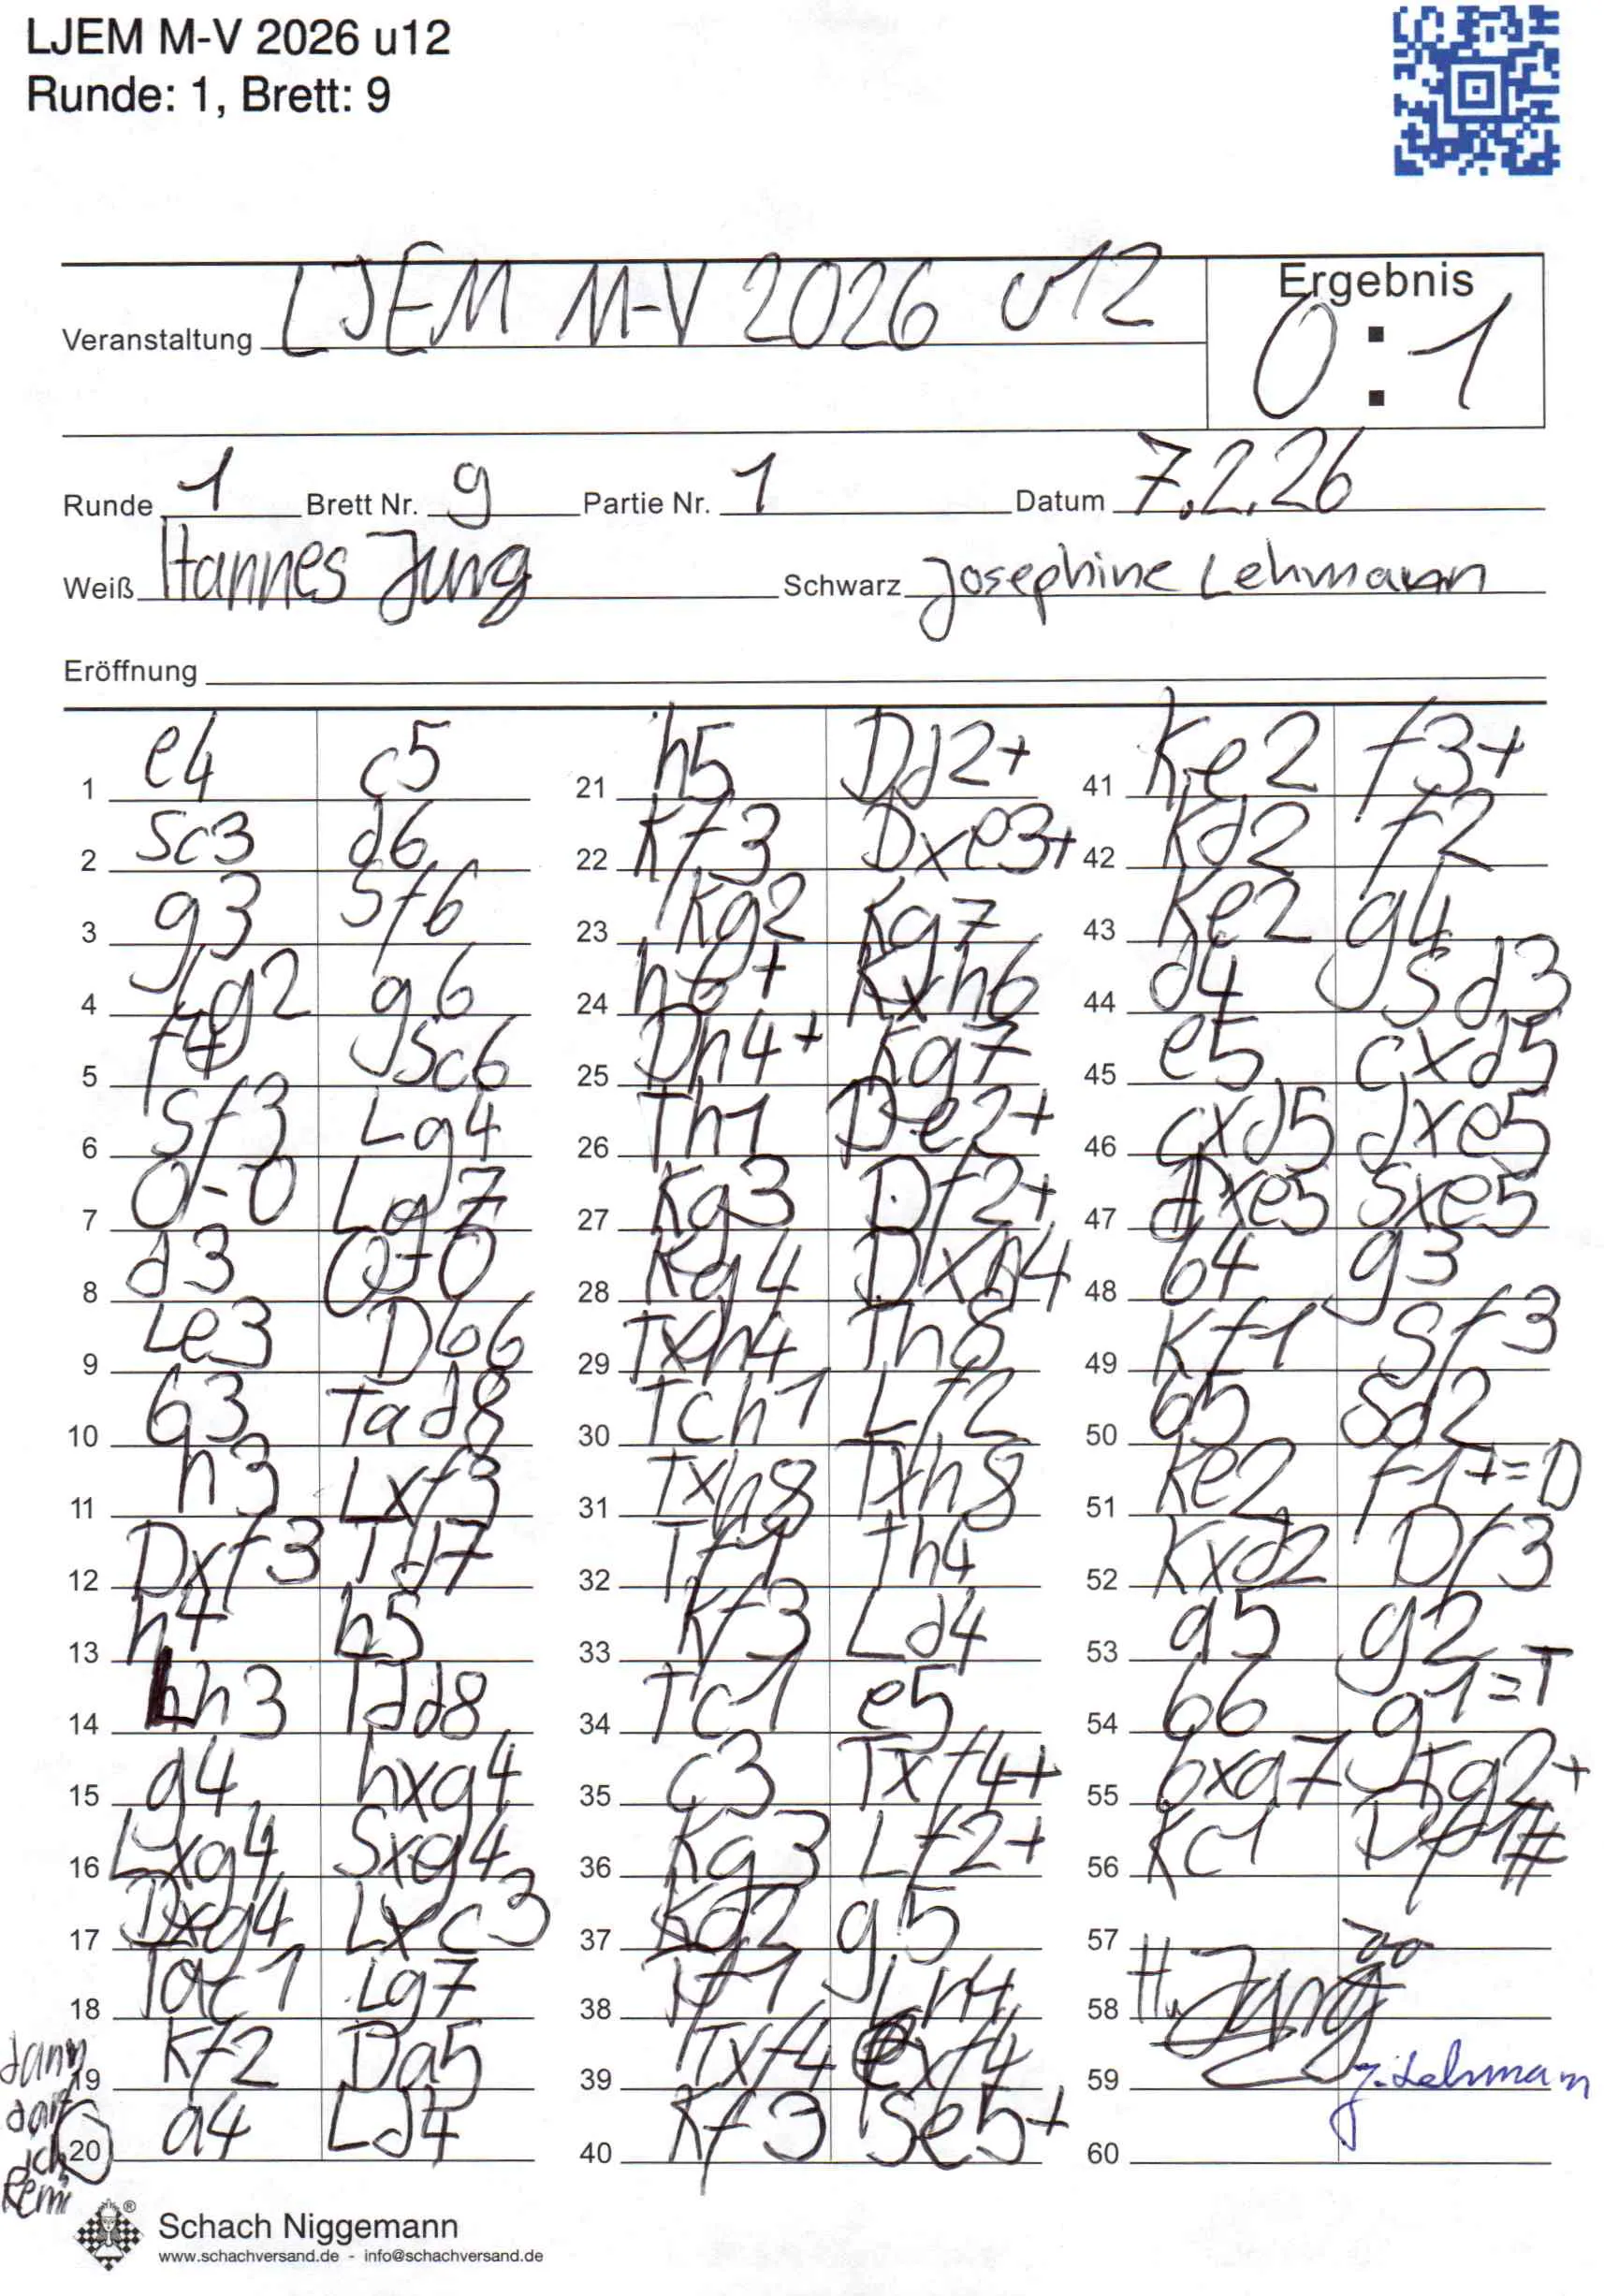 LJEM M-V 2026 u12
Runde: 1, Brett: 9
Veranstaltung LJEM M-V 2026 u12
Ergebnis
0:1
Runde 1 Brett Nr. 9 Partie Nr. 1 Datum 7.2.26
Weiß Hannes Jung Schwarz Josephine Lehmann
Eröffnung
1 e4 c5
2 Sc3 d6
3 g3 Sf6
4 Lg2 g6
5 f4 Sc6
6 Sf3 Lg4
7 0-0 Lg7
8 d3 0-0
9 Le3 Db6
10 b3 Tad8
11 h3 Lxf3
12 Dxf3 Td7
13 h4 h5
14 Lh3 Tdd8
15 g4 hxg4
16 Lxg4 Sxg4
17 Dxg4 Lxc3
18 Tac1 Lg7
19 Kf2 Da5
20 a4 Ld4
21 h5 Dd2+
22 Kf3 Dxe3+
23 Kg2 Kg7
24 h6+ Kxh6
25 Dh4+ Kg7
26 Th1 De2+
27 Kg3 Df2+
28 Kg4 Dxh4
29 Txh4 Th8
30 Tch1 Lf2
31 Txh8 Txh8
32 Tf1 Th4
33 Kf3 Ld4
34 Tc1 e5
35 c3 Txf4+
36 Kg3 Lf2+
37 Kg2 g5
38 Tf1 Lh4
39 Txf4 exf4
40 Kf3 Se5+
41 Ke2 f3+
42 Kd2 f2
43 Ke2 g4
44 d4 Sd3
45 e5 cxd5
46 cxd5 dxe5
47 dxe5 Sxe5
48 b4 g3
49 Kf1 Sf3
50 b5 Sd2
51 Ke2 f1+=D
52 Kxd2 Df3
53 a5 g2
54 b6 g1=T
55 bxa7 Tg2+
56 Kc1 Df1#
57
58 H. Jung
59 J. Lehmann
60
dann
darf
ich
Remi
Schach Niggemann
www.schachversand.de - info@schachversand.de